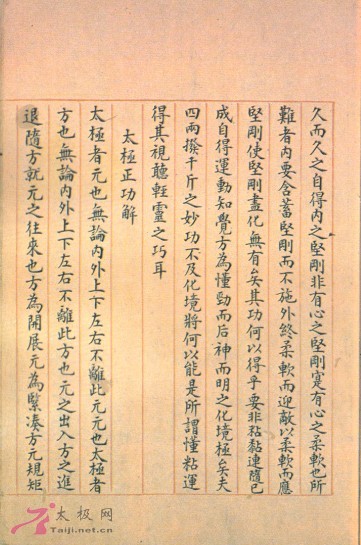 久而久之自得內之堅剛非有心之堅剛寔有心之柔軟也所
難者內要含蓄堅剛而不施外終柔軟而迎敵以柔軟而應
堅剛使堅剛盡化無有矣其功何以得乎要非粘黏連隨已
成自得運動知覺方為懂勁而后神而明之化境極矣夫
四兩撥千斤之妙功不及化境將何以能是所謂懂粘運
得其視聽輕靈之巧耳
太極正功解
太極者元也無論內外上下左右不離此元也太極者
方也無論內外上下左右不離此方也元之出入方之進
退隨方就元之往來也方為開展元為緊湊方元規矩
太极网
Taiji.net.cn